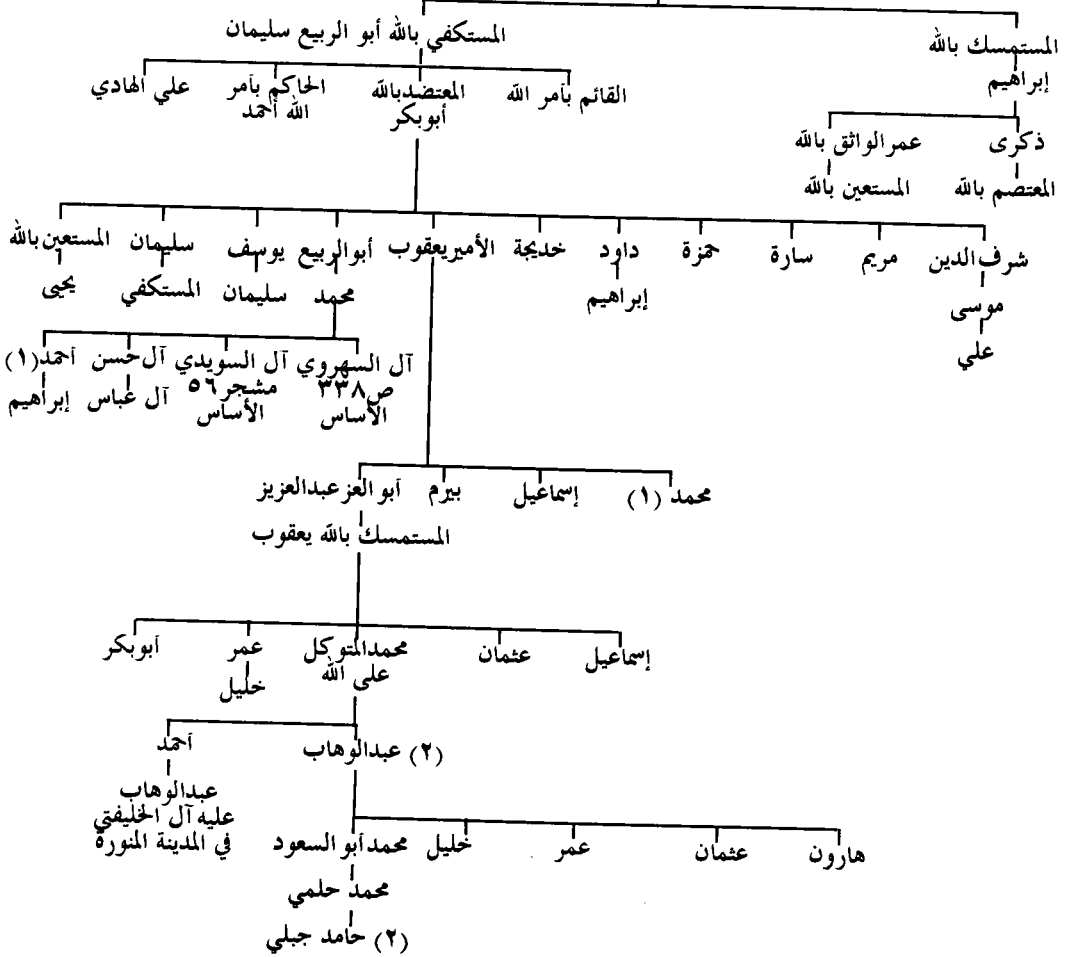 المستمسك بالله
إبراهيم
المستكفي بالله أبو الربيع سليمان
ذكرى
عمر الواثق بالله
المعتصم بالله
المستعين بالله
القائم بأمر الله
المعتضد بالله
أبوبكر
الحاكم بأمر
الله أحمد
علي الهادي
شرف الدين
موسى
علي
مريم
سارة
حمزة
داود
إبراهيم
خديجة
الأمير يعقوب
أبو الربيع
محمد
يوسف
سليمان
سليمان
المستكفي
المستعين بالله
يحيى
آل السهروي
ص٣٣٨
الأساس
آل السويدي
مشجر ٥٦
الأساس
آل حسن
آل عباس
أحمد (١)
إبراهيم
محمد (١)
إسماعيل
بيرم
أبو العز عبدالعزيز
المستمسك بالله يعقوب
إسماعيل
عثمان
محمد المتوكل
على الله
عمر
خليل
أبوبكر
(٢) عبدالوهاب
أحمد
عبدالوهاب
عليه آل الخليفتي
في المدينة المنورة
هارون
عثمان
عمر
خليل
محمد أبو السعود
محمد حلمي
(٢) حامد جبلي